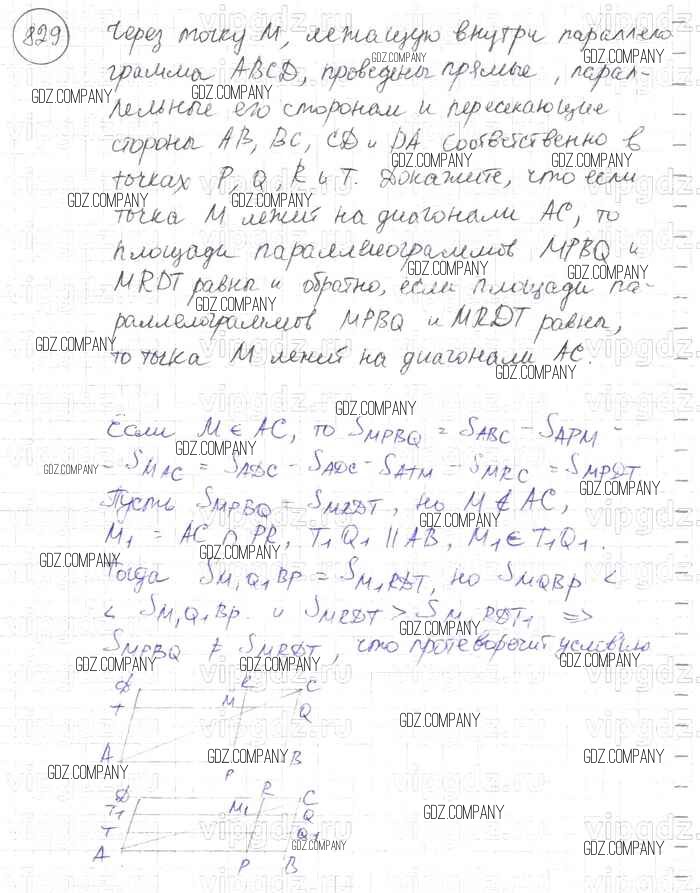 829
Через точку M, лежащую внутри параллело
грамма ABCD, проведены прямые, парал-
лельные его сторонам и пересекающие
стороны AB, BC, CD и DA соответственно в
точках P, Q, R и T. Докажите, что если
точка M лежит на диагонали AC, то
площади параллелограммов MPBQ и
MRDT равны и обратно, если площади па-
раллелограммов MPBQ и MRDT равны,
то точка M лежит на диагонали AC.
Если M ∈ AC, то S_MPBQ = S_ABC − S_APM −
− S_MAC = S_ADC − S_ADC − S_ATM − S_MRC = S_MPDT
Пусть S_MPBQ = S_MRDT, но M ∉ AC,
M₁ = AC ∩ PR, T₁Q₁ || AB, M₁ ∈ T₁Q₁.
Тогда S_M₁Q₁BP = S_M₁RDT, но S_MQBP <
< S_M₁Q₁BP и S_MRDT > S_M₁RDT₁ =>
S_MPBQ ≠ S_MRDT, что противоречит условию
D R C
T M Q
A P B
D R C
T₁ M₁ Q
T Q₁
A P B
GDZ.COMPANY
vipgdz.ru